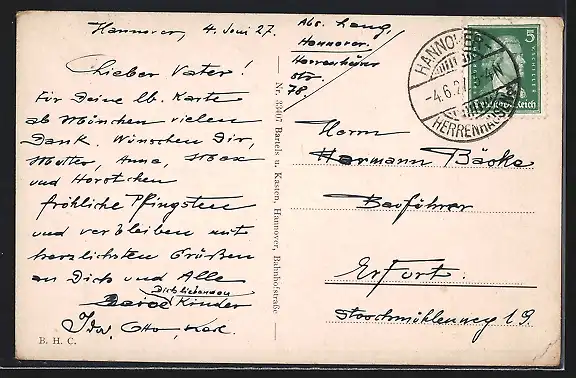 Hannover, 4. Juni 27.
Lieber Vater!
Für Deine lb. Karte
ab München vielen
Dank. Wünschen Dir,
Mutter, Anna, Max
und Horstchen
fröhliche Pfingsten
und verbleiben mit
herzlichsten Grüßen
an Dich und Alle
Dich liebenden
Kinder
Ida, Otto, Karl.
B. H. C.
Nr. 33407 Bartels u. Kasten, Hannover, Bahnhofstraße
Abs. Lang,
Hannover.
Herrenhäuser
Str.
78.
HANNOVER-
-4.6.27.
HERRENHAUSEN
5
FR. V. SCHILLER
Deutsches Reich
Herrn
Hermann Bäske
Bauführer
Erfurt.
19.